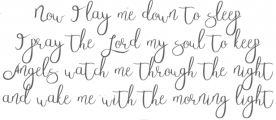 Now I lay me down to sleep
I pray the Lord my soul to keep
Angels watch me through the night
and wake me with the morning light